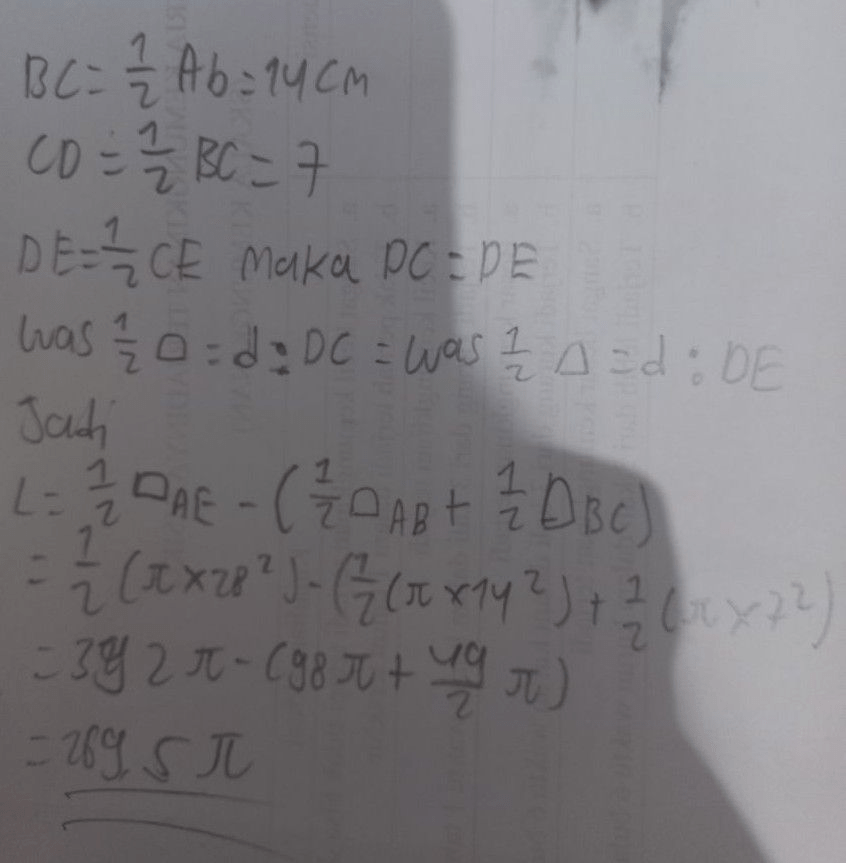 BC = 1/2 Ab = 14 cm
CD = 1/2 BC = 7
DE = 1/2 CE maka DC = DE
Luas 1/2 □ = d : DC = Luas 1/2 △ = d : DE
Jadi
L = 1/2 □AE - (1/2 □AB + 1/2 □BC)
= 1/2 (π × 28²) - (1/2 (π × 14²) + 1/2 (π × 7²)
= 392 π - (98 π + 49/2 π)
= 269,5 π